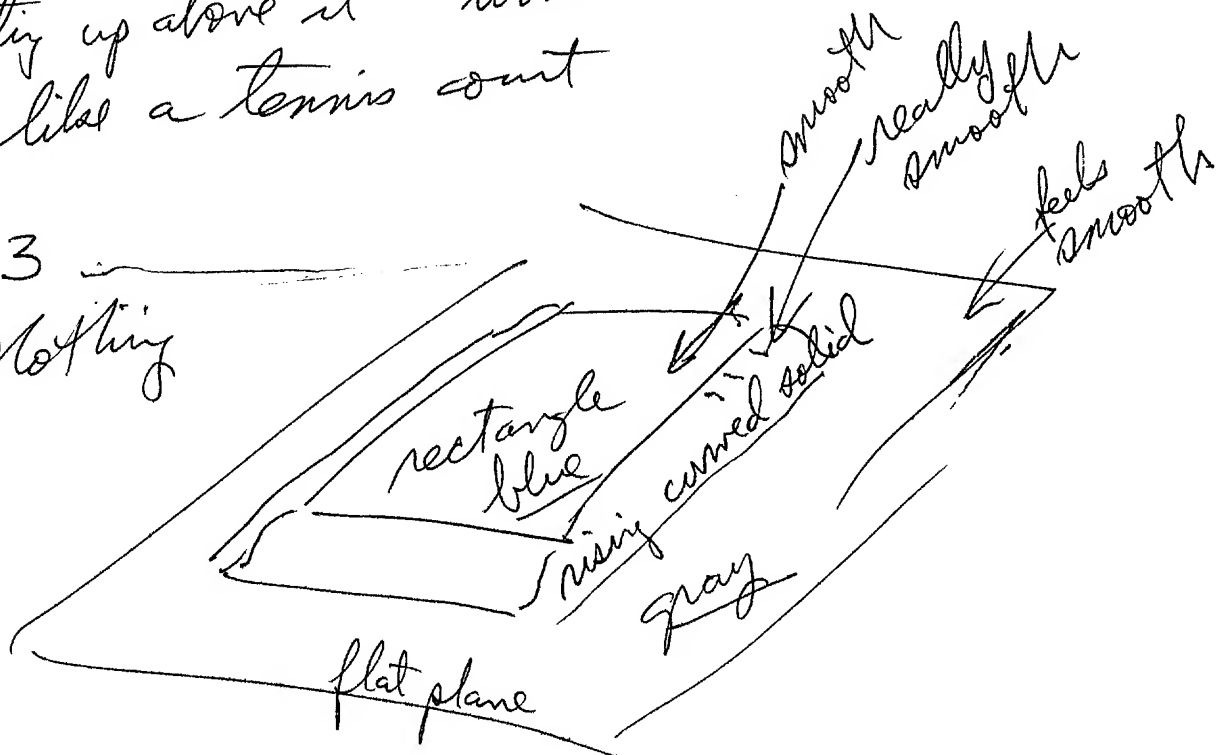 up above it
like a tennis court
smooth
really
smooth
feels
smooth
3
Nothing
rectangle
blue
rising curved solid
gray
flat plane